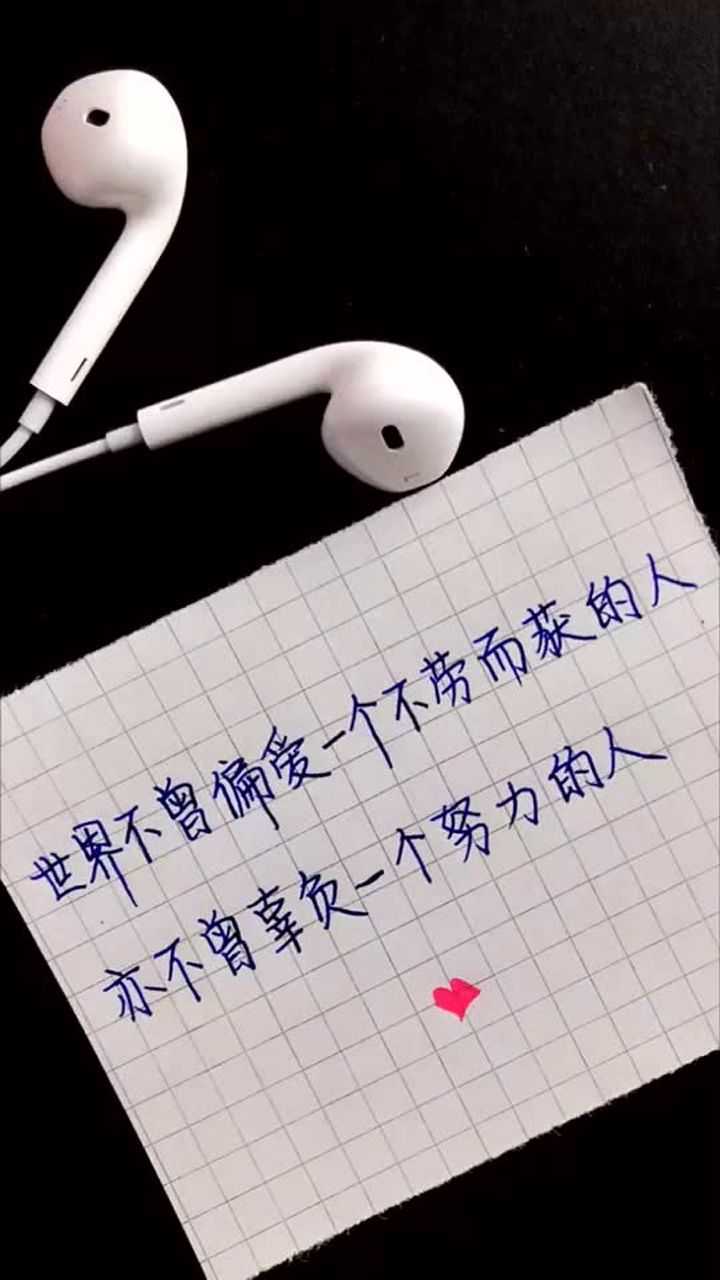 世界不曾偏爱一个不劳而获的人
亦不曾辜负一个努力的人